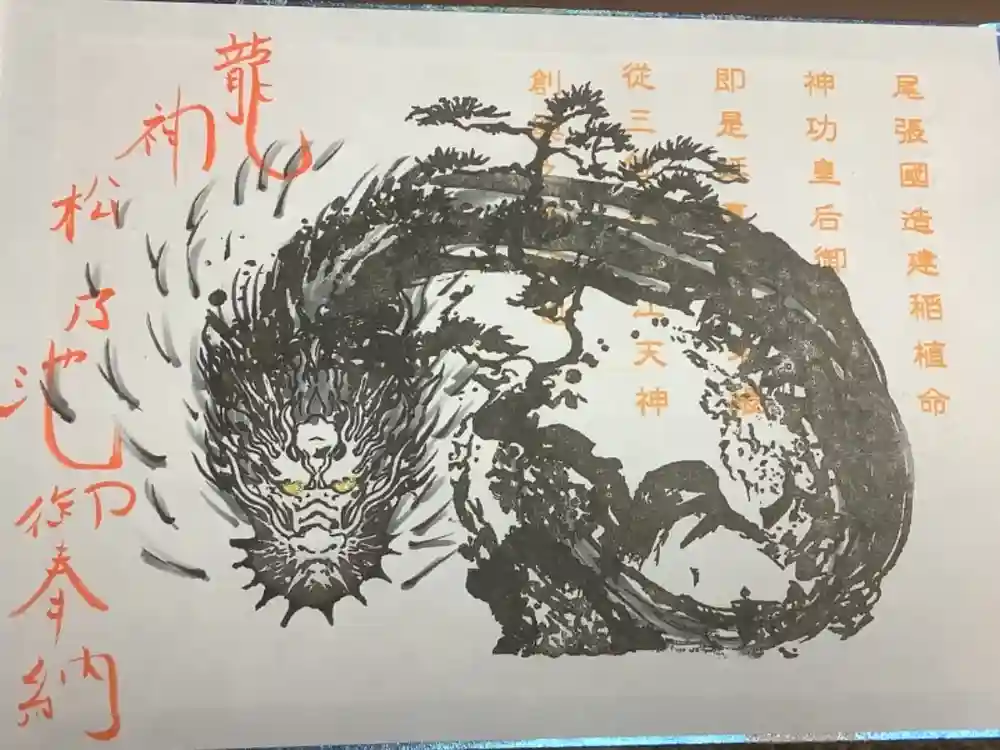 尾張國造建稲植命
神功皇后御
即是
從三 天神
創
龍神
松乃池
御奉納